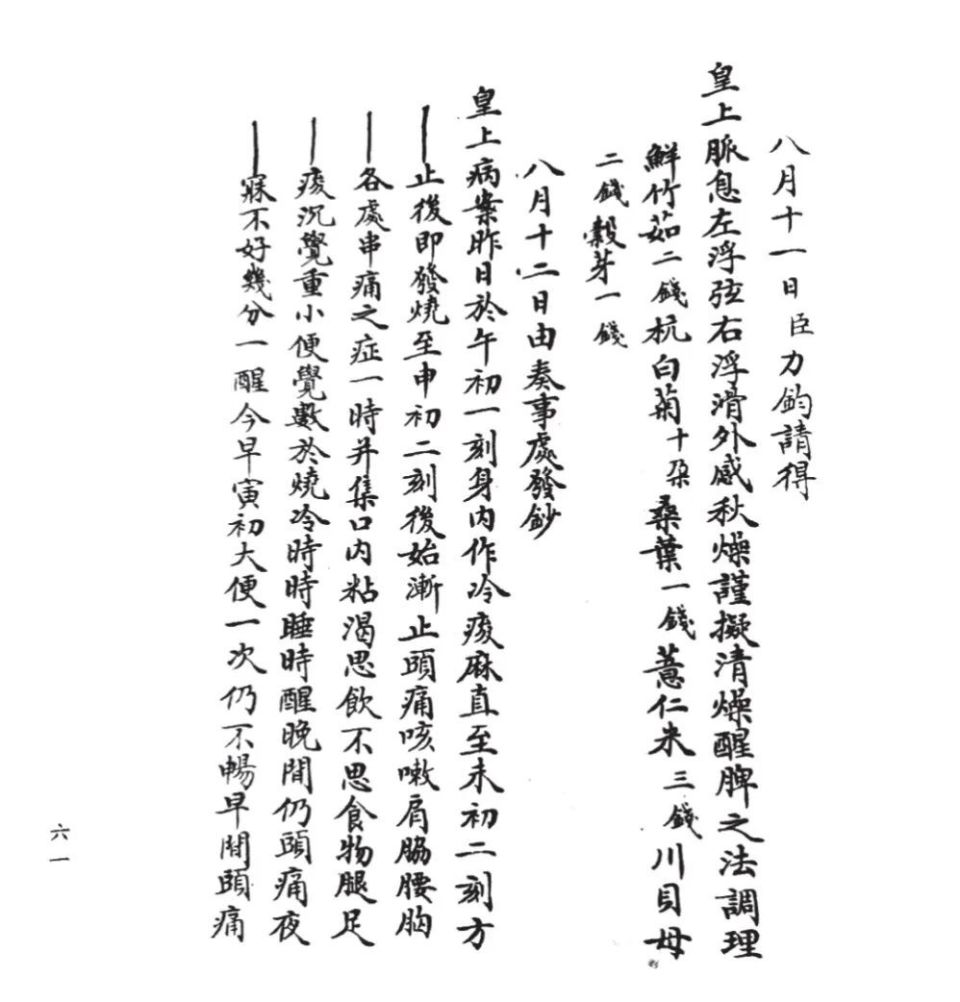 八月十一日臣力鈞請得
皇上脈息左浮弦右浮滑外感秋燥謹擬清燥醒脾之法調理
鮮竹茹二錢杭白菊十朶桑葉一錢薏仁米三錢川貝母
二錢穀芽一錢
八月十二日由奏事處發鈔
皇上病案昨日於午初一刻身內作冷痠麻直至未初二刻方
止後即發燒至申初二刻後始漸止頭痛咳嗽肩脇腰胸
各處串痛之症一時并集口內粘渴思飲不思食物腿足
痠沉覺重小便覺數於燒冷時時睡時醒晚間仍頭痛夜
寐不好幾分一醒今早寅初大便一次仍不暢早間頭痛
六一